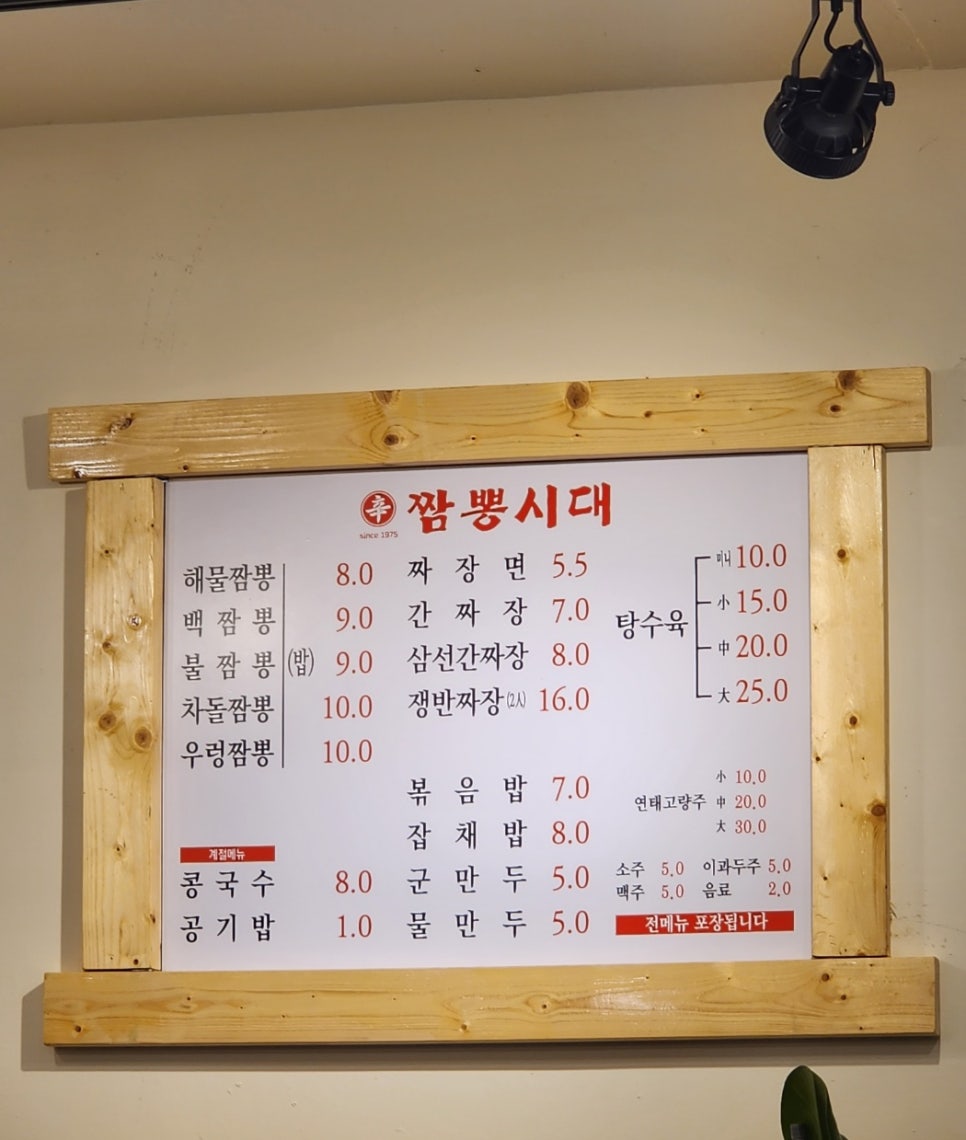 辛 짬뽕시대
since 1975
해물짬뽕 8.0
백짬뽕 9.0
불짬뽕 (밥) 9.0
차돌짬뽕 10.0
우렁짬뽕 10.0
계절메뉴
콩국수 8.0
공기밥 1.0
짜장면 5.5
간짜장 7.0
삼선간짜장 8.0
쟁반짜장(2人) 16.0
볶음밥 7.0
잡채밥 8.0
군만두 5.0
물만두 5.0
탕수육
미니 10.0
小 15.0
中 20.0
大 25.0
연태고량주
小 10.0
中 20.0
大 30.0
소주 5.0 이과두주 5.0
맥주 5.0 음료 2.0
전메뉴 포장됩니다